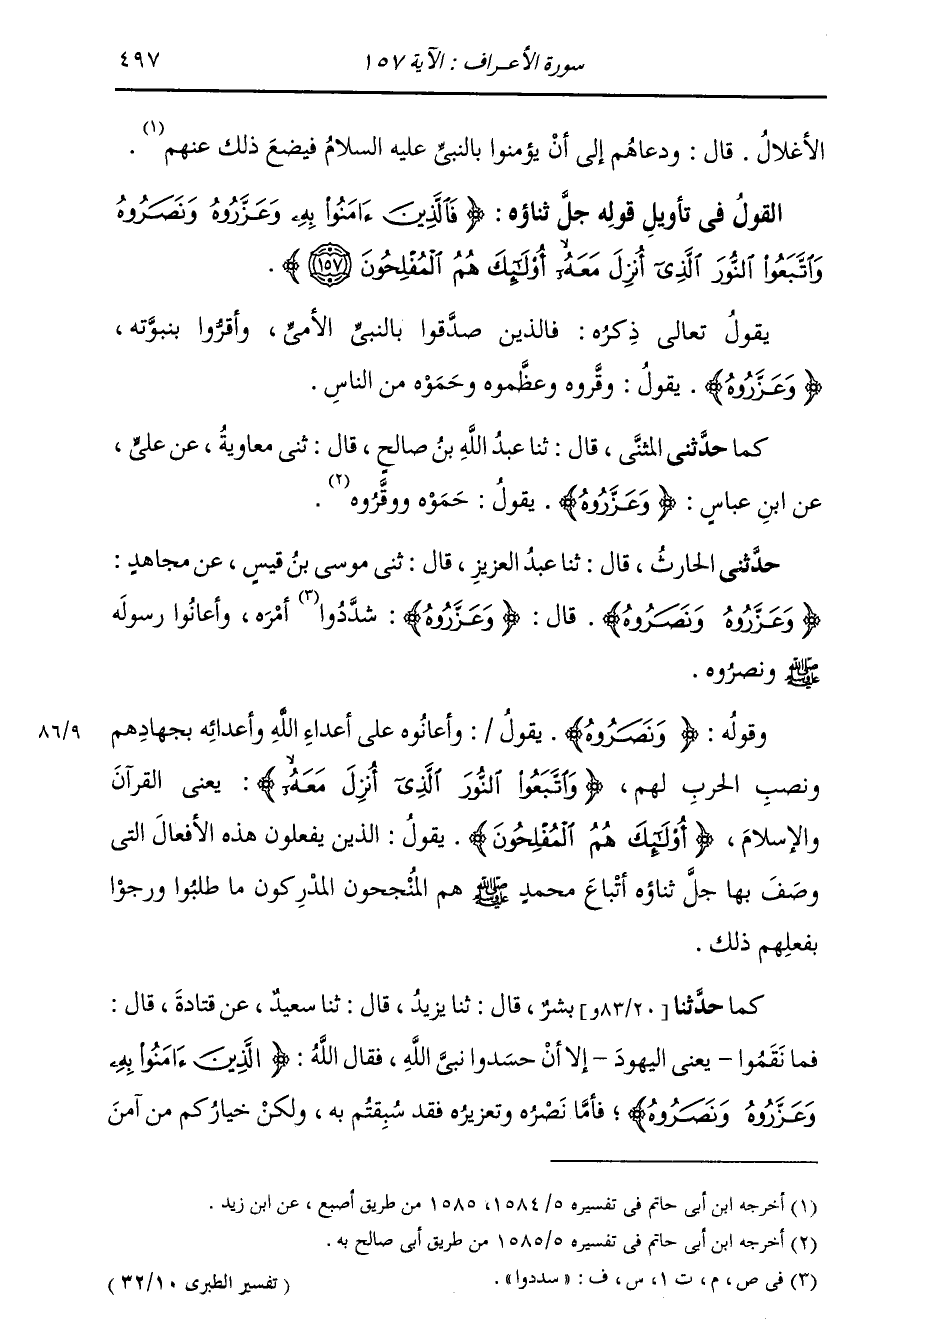 سورة الأعراف : الآية ١٥٧ ٤٩٧
الأغلالُ . قال : ودعاهُم إلى أنْ يؤمنوا بالنبىِّ عليه السلامُ فيضعَ ذلك عنهم(١) .
القولُ فى تأويلِ قولِه جلَّ ثناؤه : ﴿ فَٱلَّذِينَ ءَامَنُوا۟ بِهِۦ وَعَزَّرُوهُ وَنَصَرُوهُ
وَٱتَّبَعُوا۟ ٱلنُّورَ ٱلَّذِىٓ أُنزِلَ مَعَهُۥٓ ۙ أُو۟لَـٰٓئِكَ هُمُ ٱلْمُفْلِحُونَ ﴿١٥٧﴾ ﴾ .
يقولُ تعالى ذِكرُه : فالذين صدَّقوا بالنبىِّ الأمىِّ ، وأقرُّوا بنبوَّته ،
﴿ وَعَزَّرُوهُ ﴾ . يقولُ : وقَّروه وعظَّموه وحَمَوْه من الناسِ .
كما حدَّثنى المثنَّى ، قال : ثنا عبدُ اللَّهِ بنُ صالحٍ ، قال : ثنى معاويةُ ، عن علىٍّ ،
عن ابنِ عباسٍ : ﴿ وَعَزَّرُوهُ ﴾ . يقولُ : حَمَوْه ووقَّرُوه(٢) .
حدَّثنى الحارثُ ، قال : ثنا عبدُ العزيزِ ، قال : ثنى موسى بنُ قيسٍ ، عن مجاهدٍ :
﴿ وَعَزَّرُوهُ وَنَصَرُوهُ ﴾ . قال : ﴿ وَعَزَّرُوهُ ﴾ : شدَّدُوا(٣) أمْرَه ، وأعانُوا رسولَه
ﷺ ونصرُوه .
وقولُه : ﴿ وَنَصَرُوهُ ﴾ . يقولُ / : وأعانُوه على أعداءِ اللَّهِ وأعدائِه بجهادِهم ٨٦/٩
ونصبِ الحربِ لهم ، ﴿ وَٱتَّبَعُوا۟ ٱلنُّورَ ٱلَّذِىٓ أُنزِلَ مَعَهُۥٓ ۙ ﴾ : يعنى القرآنَ
والإسلامَ ، ﴿ أُو۟لَـٰٓئِكَ هُمُ ٱلْمُفْلِحُونَ ﴾ . يقولُ : الذين يفعلون هذه الأفعالَ التى
وصَفَ بها جلَّ ثناؤه أتْباعَ محمدٍ ﷺ هم المُنْجحون المدْرِكون ما طلبُوا ورجوْا
بفعلِهم ذلك .
كما حدَّثنا [٨٣/٢٠و] بشرٌ ، قال : ثنا يزيدُ ، قال : ثنا سعيدٌ ، عن قتادةَ ، قال :
فما نَقَمُوا - يعنى اليهودَ - إلا أنْ حسَدوا نبىَّ اللَّهِ ، فقال اللَّهُ : ﴿ الَّذِينَ ءَامَنُوا۟ بِهِۦ
وَعَزَّرُوهُ وَنَصَرُوهُ ﴾ ؛ فأمَّا نَصْرُه وتعزيرُه فقد سُبِقتُم به ، ولكنْ خيارُكم من آمنَ
(١) أخرجه ابن أبى حاتم فى تفسيره ١٥٨٤/٥، ١٥٨٥ من طريق أصبع ، عن ابن زيد .
(٢) أخرجه ابن أبى حاتم فى تفسيره ١٥٨٥/٥ من طريق أبى صالح به .
(٣) فى ص ، م ، ت ١، س ، ف : «سددوا» . ( تفسير الطبرى ٣٢/١٠ )